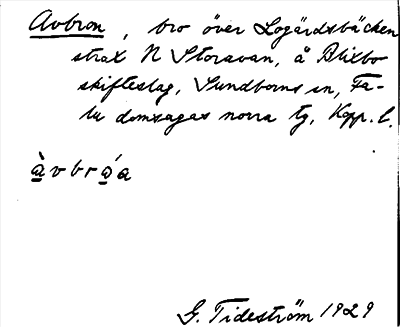 Avbron, bro över Logärdsbäcken
strax N Storavan, å Blixbo
skifteslag, Sundborns sn, Fa-
lu domsagas norra tg, Kopp. l.
à̱vbrá̱a
G. Tideström 1929